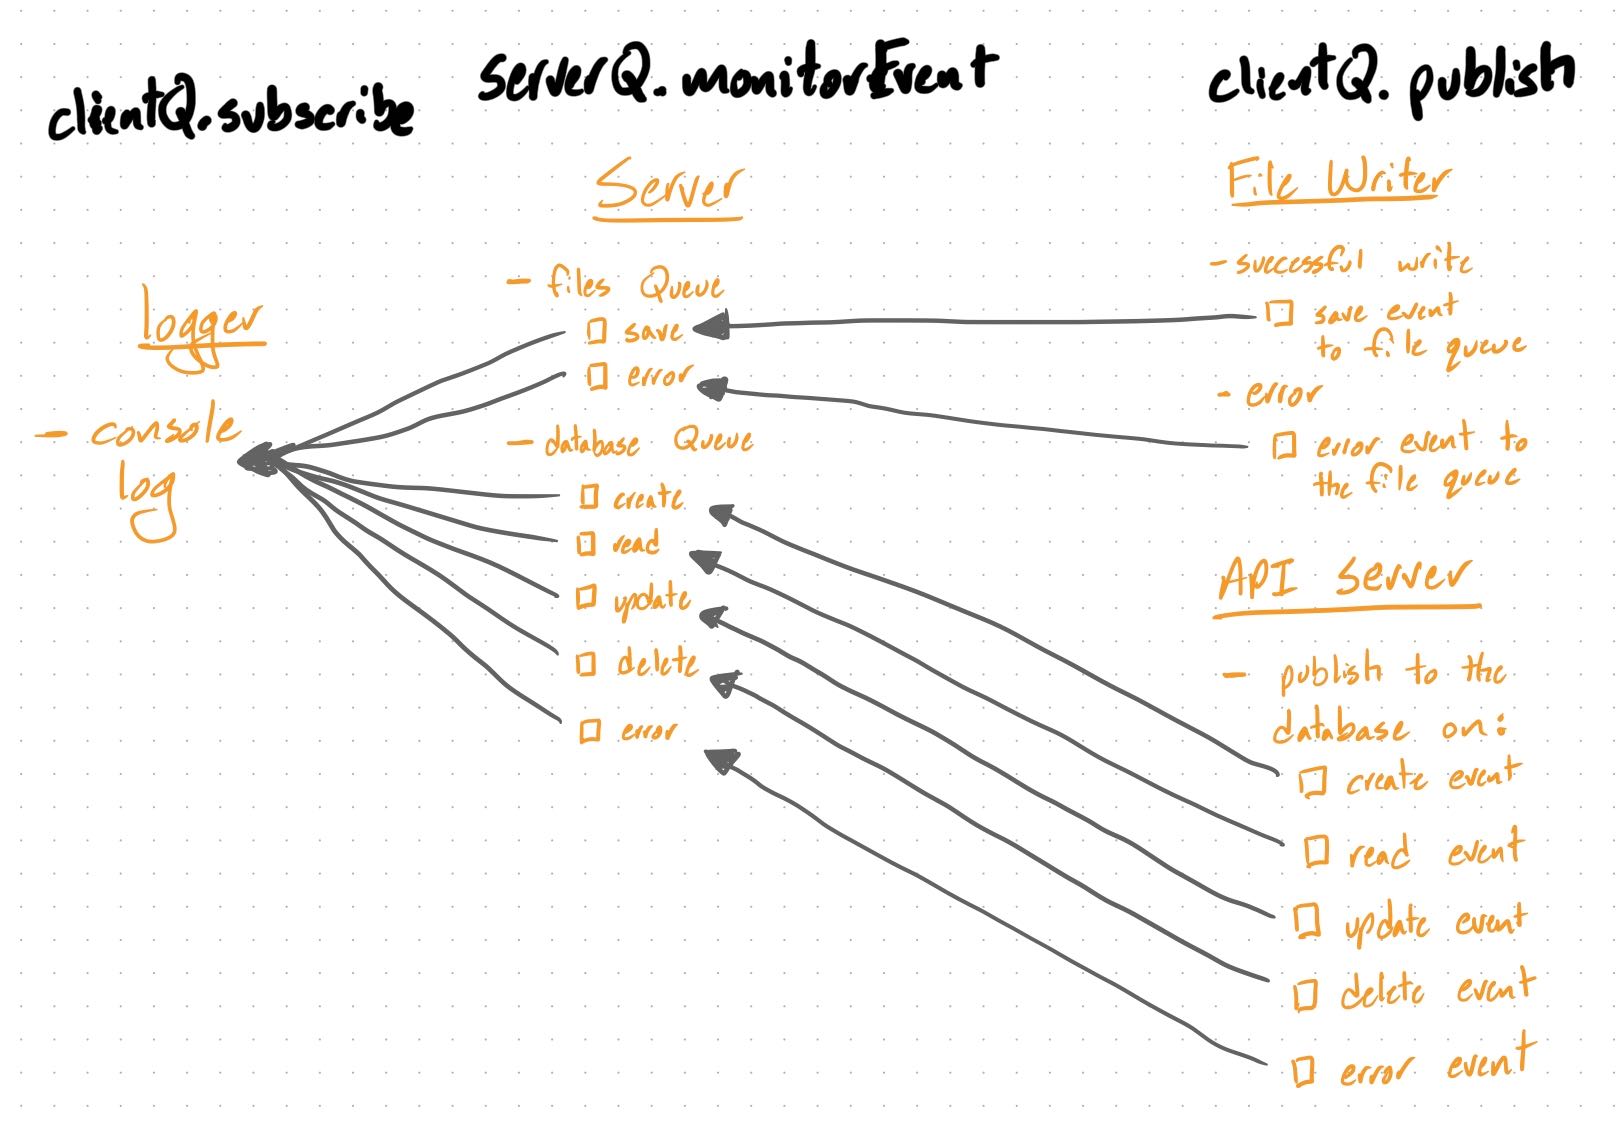 clientQ.subscribe
serverQ.monitorEvent
clientQ.publish
logger
- console
log
Server
- files Queue
save
error
- database Queue
create
read
update
delete
error
File Writer
- successful write
save event
to file queue
- error
error event to
the file queue
API Server
- publish to the
database on:
create event
read event
update event
delete event
error event